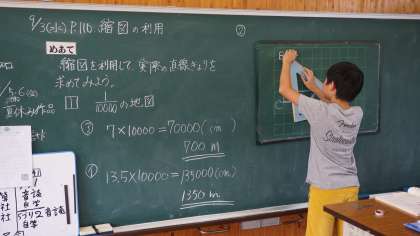 9/3(火) P.110 縮図の利用
めあて
縮図を利用して、実際の直線きょりを
求めてみよう。
1 1/10000 の地図
③ 7×10000=70000(cm)
700 m
④ 13.5×10000=135000(cm)
1350 m
②
夏休み作品
音読
自学